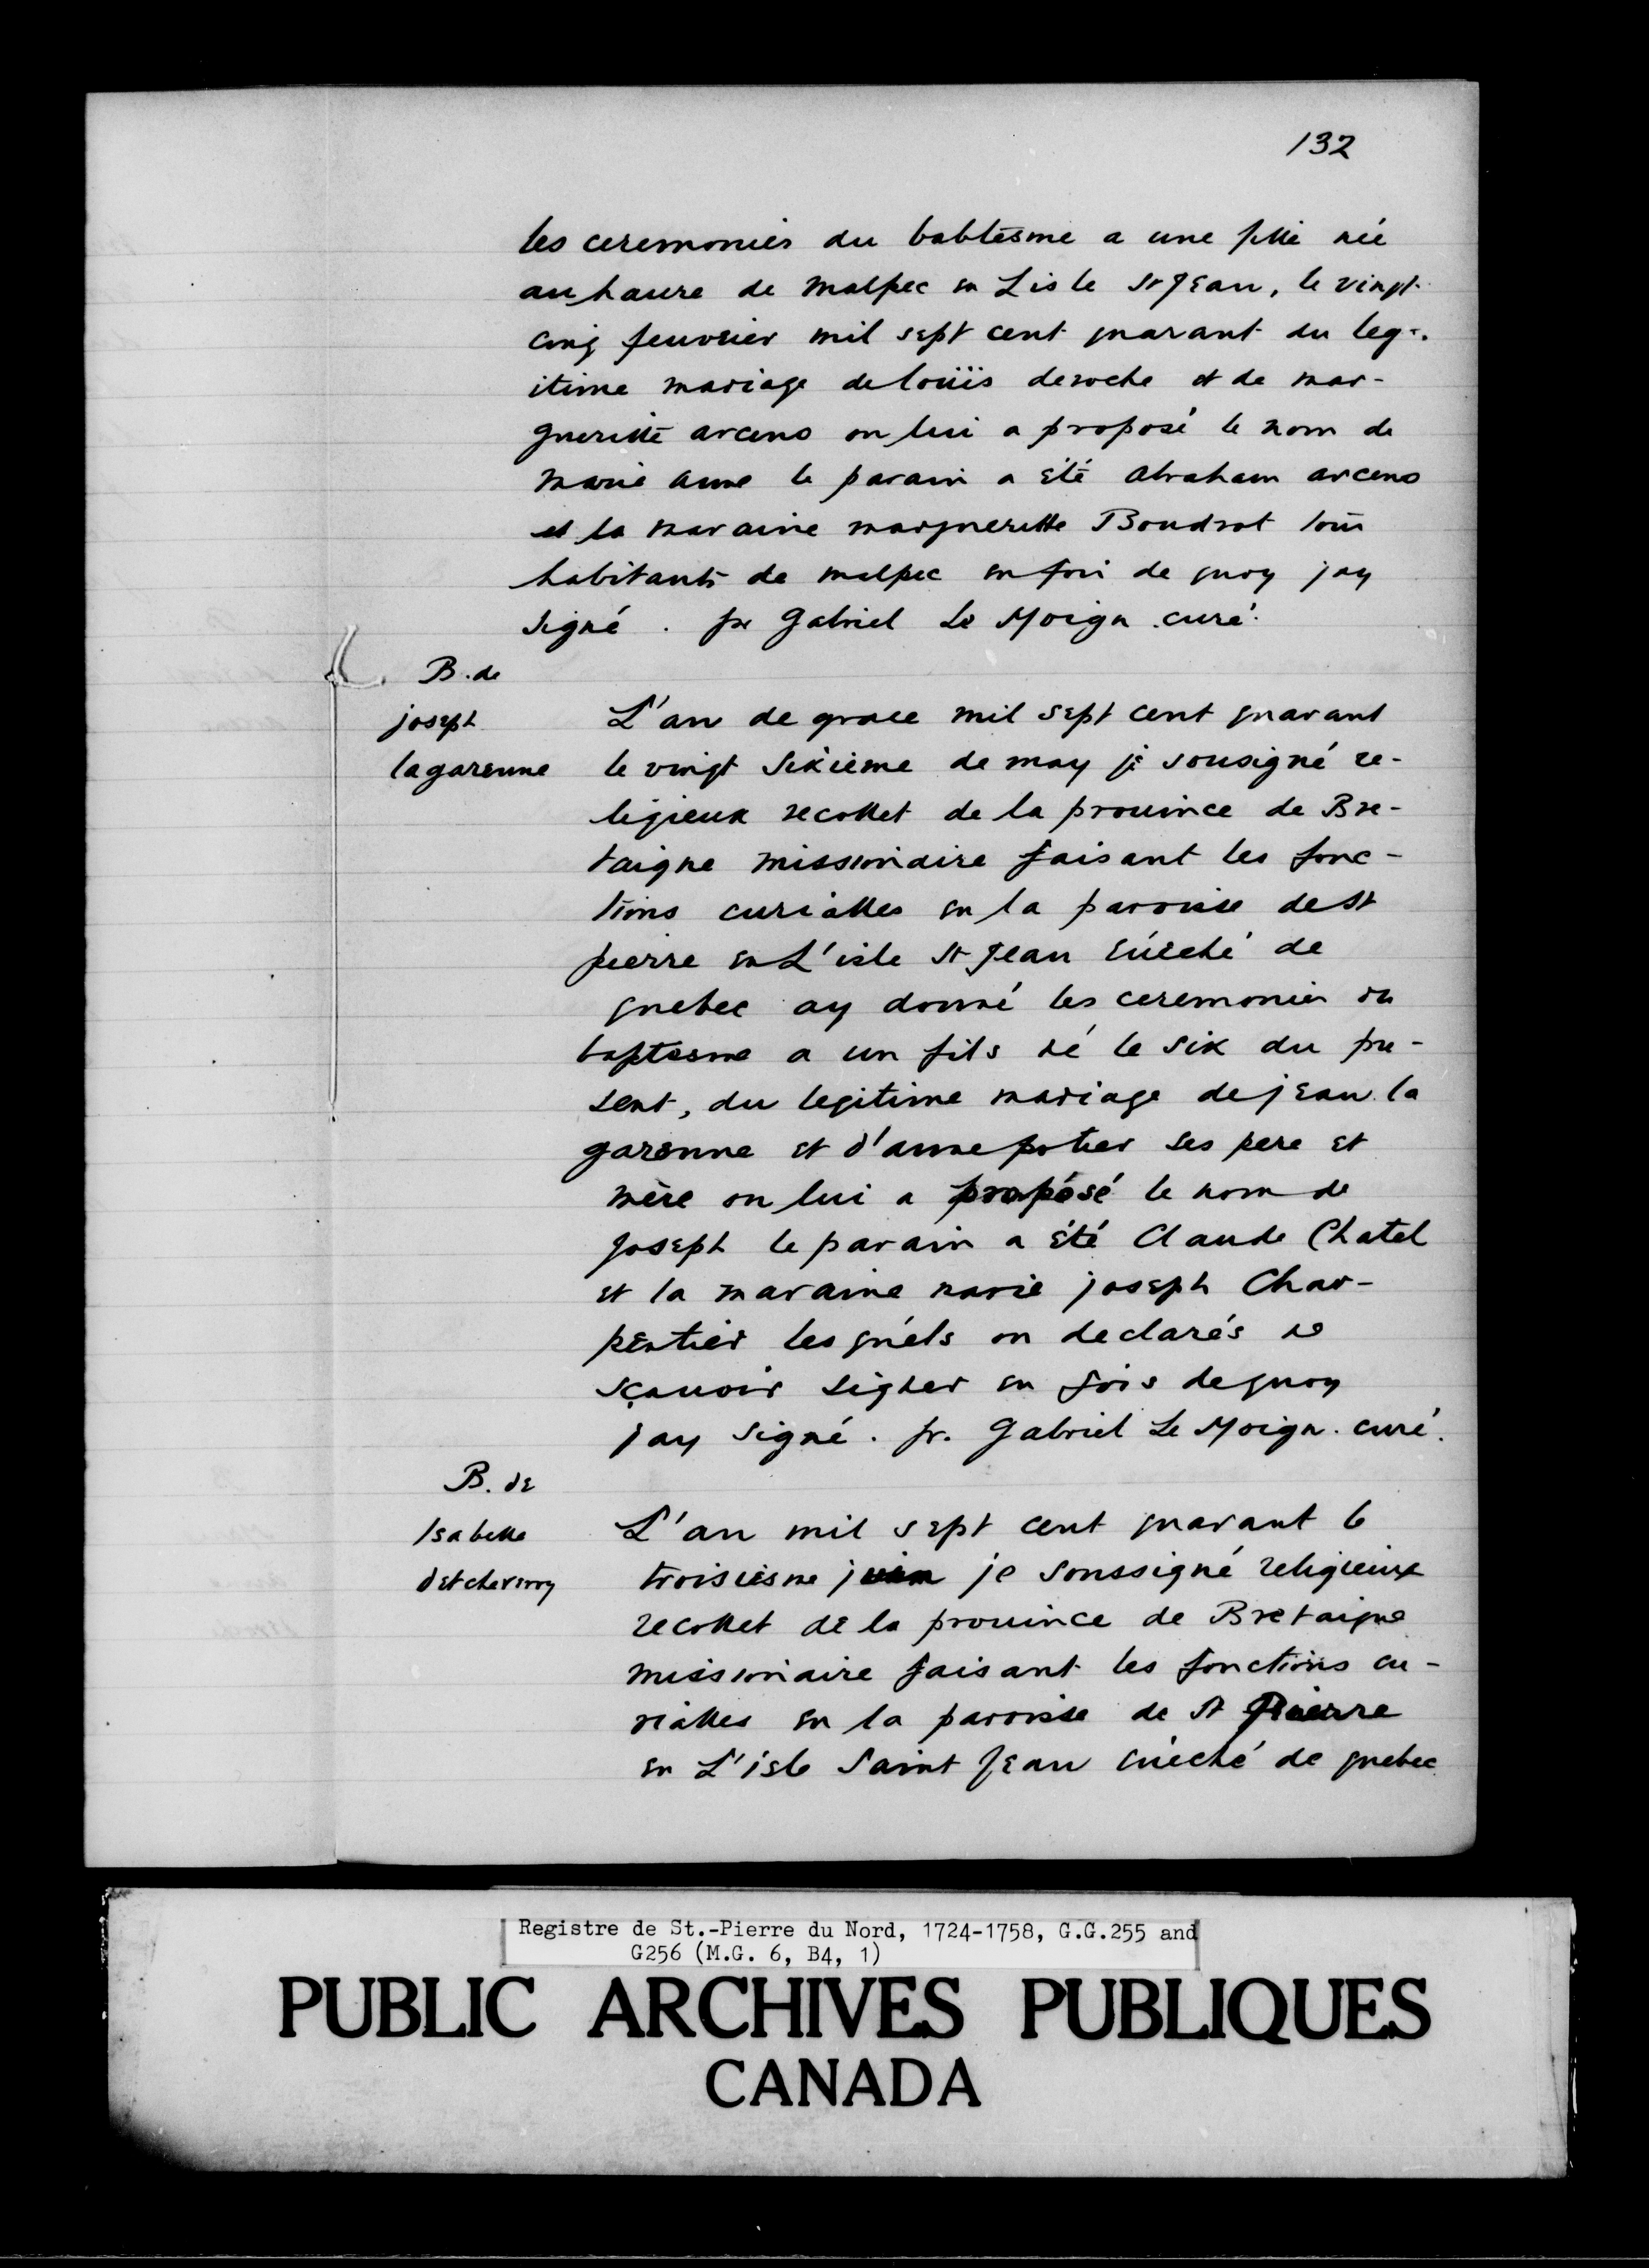 132
les ceremonies du babtesme a une fille née
au haure de malpec en Lisle St Jean, le vingt
cinq feuvrier mil sept cent quarant du leg-
itime mariage de loüis deroche et de mar-
gueritte arceno on lui a proposé le nom de
marie anne le parain a été abraham arceno
et la maraine margueritte Boudrot tous
habitants de malpec en foi de quoy jay
signé . fr Gabriel Le Moign curé.
B. de
joseph
lagarenne
L'an de grace mil sept cent quarant
le vingt sixieme de may je sousigné re-
ligieux recollet de la prouince de Bre-
taigne missionaire faisant les fonc-
tions curialles en la paroisse de St
pierre en L'isle St Jean éuéché de
quebec ay donné les ceremonies du
baptesme a un fils né le six du pre-
sent, du legitime mariage de jean la
garenne et d'anne potier ses pere et
mère on lui a proposé le nom de
joseph le parain a été Claude Chatel
et la maraine marie joseph Char-
pentier lesquels on declarés ne
sçauoir signer en fois de quoy
jay signé . fr. Gabriel Le Moign. curé.
B. de
Isabelle
detcheverry
L'an mil sept cent quarant le
troisiesme juin je soussigné religieux
recollet de la prouince de Bretaigne
missionaire faisant les fonctions cu-
rialles en la paroisse de St Pierre
en L'isle Saint Jean éuéché de quebec
Registre de St.-Pierre du Nord, 1724-1758, G.G.255 and
G256 (M.G. 6, B4, 1)
PUBLIC ARCHIVES PUBLIQUES
CANADA